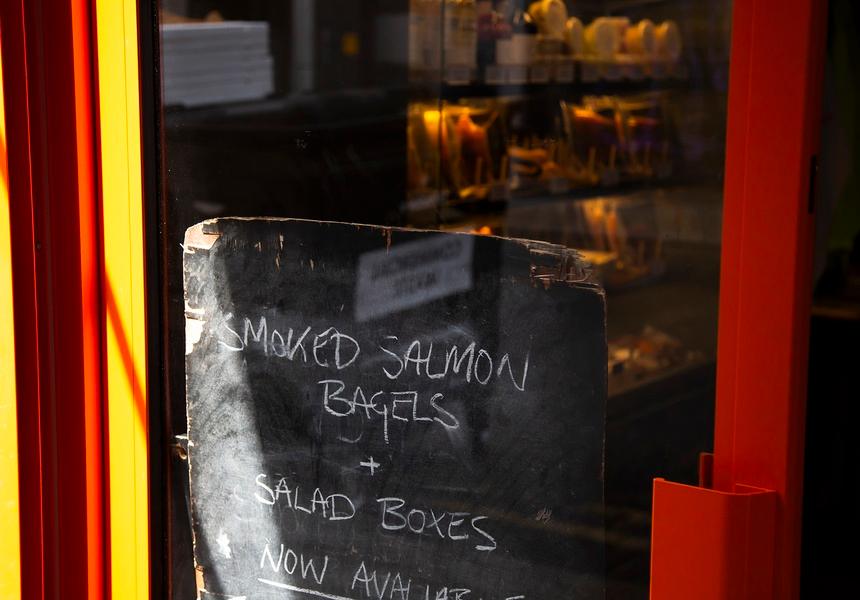 SMOKED SALMON
BAGELS
+
SALAD BOXES
NOW